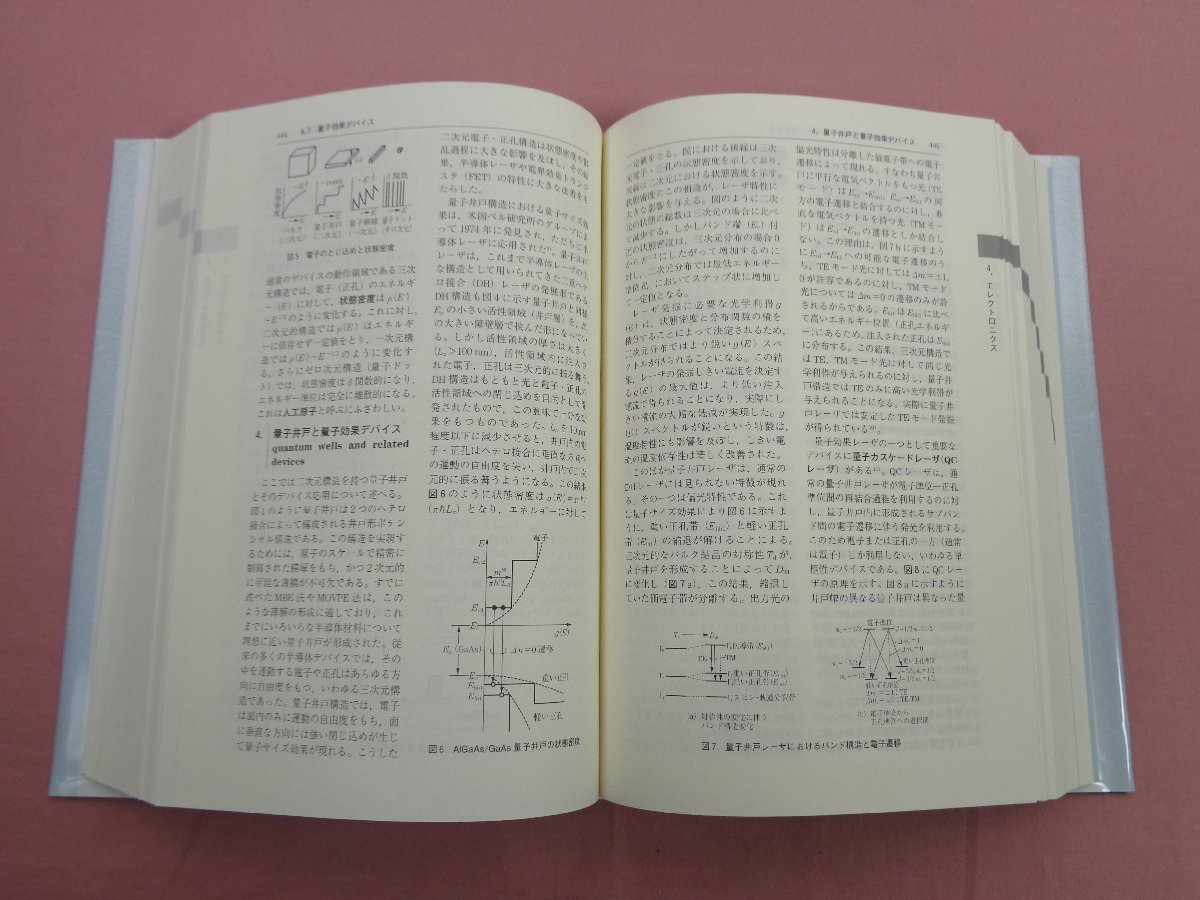 444 4.7 量子効果デバイス
バルク 量子井戸 量子細線 量子ドット
図5 電子のとじ込めと状態密度
通常のデバイスの動作領域である三次
元構造では，電子（正孔）のエネルギ
ー（E）に対して，状態密度はρ(E)
のように変化する。これに対し，
二次元的構造ではρ(E)はエネルギ
ーに依存せず一定値をとり，一次元構
造ではρ(E)～E⁻¹ᐟ²のように変化す
る。さらにゼロ次元構造（量子ドッ
ト）では，状態密度はδ関数的になり，
エネルギー準位は完全に離散的になる。
これは人工原子と呼ぶにふさわしい。
4. 量子井戸と量子効果デバイス
quantum wells and related
devices
ここでは三次元構造を持つ量子井戸
とそのデバイス応用について述べる。
図1のように量子井戸は2つのヘテロ
接合によって構成される井戸形ポテン
シャル構造である。この構造を実現す
るためには，原子のスケールで精密に
制御された膜厚をもち，かつ2次元的
に平坦な薄膜が不可欠である。すでに
述べたMBE法やMOVPE法は，この
ような薄膜の形成に適しており，これ
までにいろいろな半導体材料について
理想に近い量子井戸が形成された。従
来の多くの半導体デバイスでは，その
中を運動する電子や正孔はあらゆる方
向に自由度をもつ，いわゆる三次元構
造であった。量子井戸構造では，電子
は面内のみに運動の自由度をもち，面
に垂直な方向には強い閉じ込めが生じ
て量子サイズ効果が現れる。こうした
二次元電子・正孔構造は状態密度や散
乱過程に大きな影響を及ぼし，その結
果，半導体レーザや電界効果トランジ
スタ（FET）の特性に大きな改善をも
たらした。
量子井戸構造における量子サイズ効
果は，米国ベル研究所のグループによ
って1974年に発見され，ただちに半
導体レーザに応用された
レーザは，これまで半導体レーザの主
な構造として用いられてきた二重ヘテ
ロ接合（DH）レーザの発展形である。
DH構造も図4に示す量子井戸と同様，
の小さい活性領域（井戸層）を，
の大きい障壁層で挟んだ形になってい
る。しかし活性領域の厚さは大きく
(Lz>100 nm)，活性領域内に注入さ
れた電子，正孔は三次元的に振る舞う。
DH構造はもともと光と電子・正孔の
活性領域への閉じ込めを目的として開
発されたもので，この意味で十分な効
果をもつものであった。Lzを10 nm
程度以下に減少させると，井戸内の電
子・正孔はヘテロ接合に垂直な方向へ
の運動の自由度を失い，井戸内で二次
元的に振る舞うようになる。この結果
図6のように状態密度はρ(E)=m*/
(πℏLz)となり，エネルギーに対して
電子
E
g(E)
Eg(GaAs)
Δn=0遷移
重い正孔
軽い正孔
図6 AlGaAs/GaAs量子井戸の状態密度
4．量子井戸と量子効果デバイス 445
一定値をとる。図における破線は三次
元電子・正孔の状態密度を示しており，
実線は二次元における状態密度を示す。
状態密度のこの相違が，レーザ特性に
大きな影響を与える。図のように二次
元の状態の総数は三次元の場合に比べ
て減少する。しかしバンド端（Ec）付
近の状態密度は，三次元分布の場合0
からE¹ᐟ²にしたがって増加するのに
対し，二次元分布では最低エネルギー
準位においてステップ状に増加し
て一定値となる。
レーザ発振に必要な光学利得g
(E)は，状態密度と分布関数の積を
積分することによって決定されるため，
二次元分布ではより鋭いg(E)スペ
クトルが得られることになる。この結
果，レーザの発振しきい電流を決定す
るg(E)の最大値は，より低い注入
電流で得られることになり，実際にし
きい電流の大幅な低減が実現した。g
(E)スペクトルが鋭いという特徴は，
温度特性にも影響を及ぼし，しきい電
流の温度依存性は著しく改善された。
このほか量子井戸レーザは，通常の
DHレーザには見られない特徴が現れ
る。その一つは偏光特性である。これ
は量子サイズ効果により図6に示すよ
うに，重い正孔帯（Ehh）と軽い正孔
帯（Elh）の縮退が解けることによる。
三次元的なバルク結晶の対称性Tdが，
量子井戸を形成することによってD2d
に変化し（図7a），この結果，縮退し
ていた価電子帯が分離する。出力光の
偏光特性は分離した価電子帯への電子
遷移によって現れる。すなわち量子井
戸に平行な電気ベクトルをもつ光（TE
モード）は の両
方の電子遷移と結合するのに対し，垂
直な電気ベクトルを持つ光（TMモー
ド）は の遷移としか結合し
ない。この理由は，図7bに示すよう
に への可能な電子遷移のう
ち，TEモード光に対してはΔm=±1,
0が許容であるのに対し，TMモード
光についてはΔm=0の遷移のみが許
されるからである。 は に比べ
て高いエネルギー位置（正孔エネルギ
ー）にあるため，注入された正孔は
に分布する。この結果，三次元構造で
はTE，TMモード光に対して同じ光
学利得が与えられるのに対し，量子井
戸構造ではTEのみに高い光学利得が
与えられることになる。実際に量子井
戸レーザでは安定したTEモード発振
が得られている
量子効果レーザの一つとして重要な
デバイスに量子カスケードレーザ（QC
レーザ）がある。QCレーザは，通
常の量子井戸レーザが電子準位―正孔
準位間の再結合過程を利用するのに対
し，量子井戸内に形成されるサブバン
ド間の電子遷移に伴う発光を利用する。
このため電子または正孔の一方（通常
は電子）しか利用しない，いわゆる単
極性デバイスである。図8にQCレー
ザの原理を示す。図8aに示すように
井戸幅の異なる量子井戸は異なった量
TE TM
(a) 対称性の変化に伴う
バンド構造変化
電子準位
重い正孔準位
軽い正孔準位
(b) 電子準位から
正孔準位への選択則
図7 量子井戸レーザにおけるバンド構造と電子遷移
4．エレクトロニクス